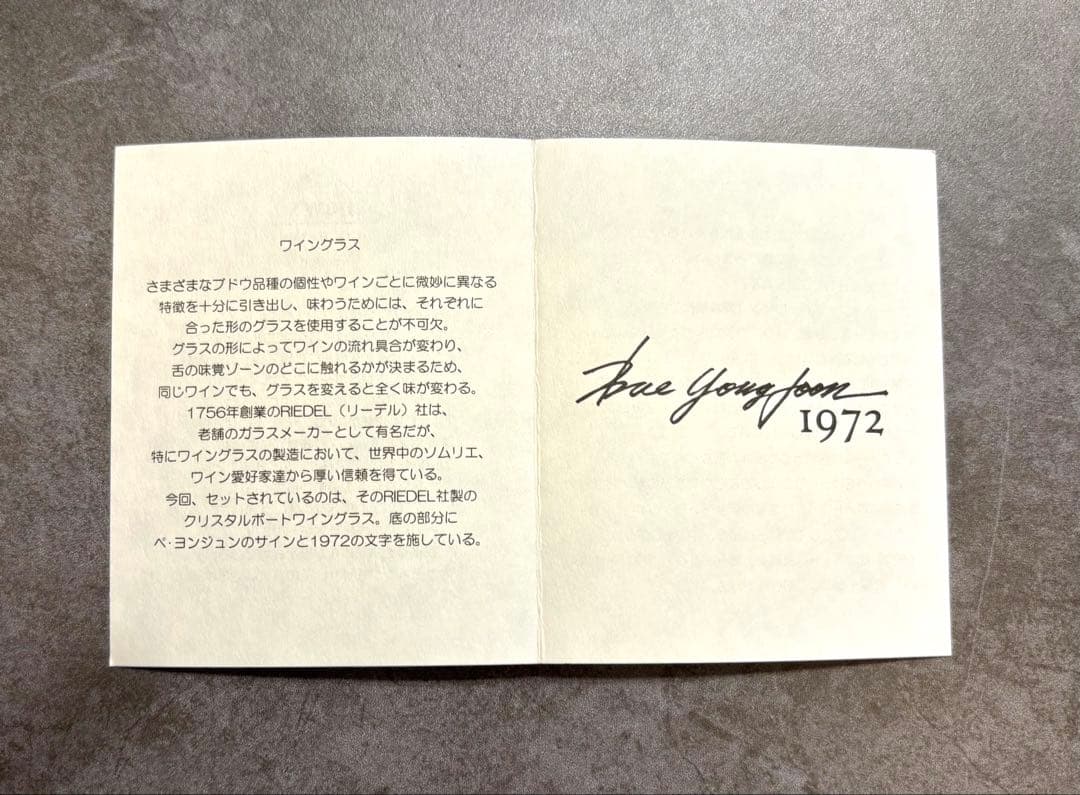 ワイングラス
さまざまなブドウ品種の個性やワインごとに微妙に異なる
特徴を十分に引き出し、味わうためには、それぞれに
合った形のグラスを使用することが不可欠。
グラスの形によってワインの流れ具合が変わり、
舌の味覚ゾーンのどこに触れるかが決まるため、
同じワインでも、グラスを変えると全く味が変わる。
1756年創業のRIEDEL（リーデル）社は、
老舗のガラスメーカーとして有名だが、
特にワイングラスの製造において、世界中のソムリエ、
ワイン愛好家達から厚い信頼を得ている。
今回、セットされているのは、そのRIEDEL社製の
クリスタルポートワイングラス。底の部分に
ペ・ヨンジュンのサインと1972の文字を施している。
Bae Yong Joon
1972